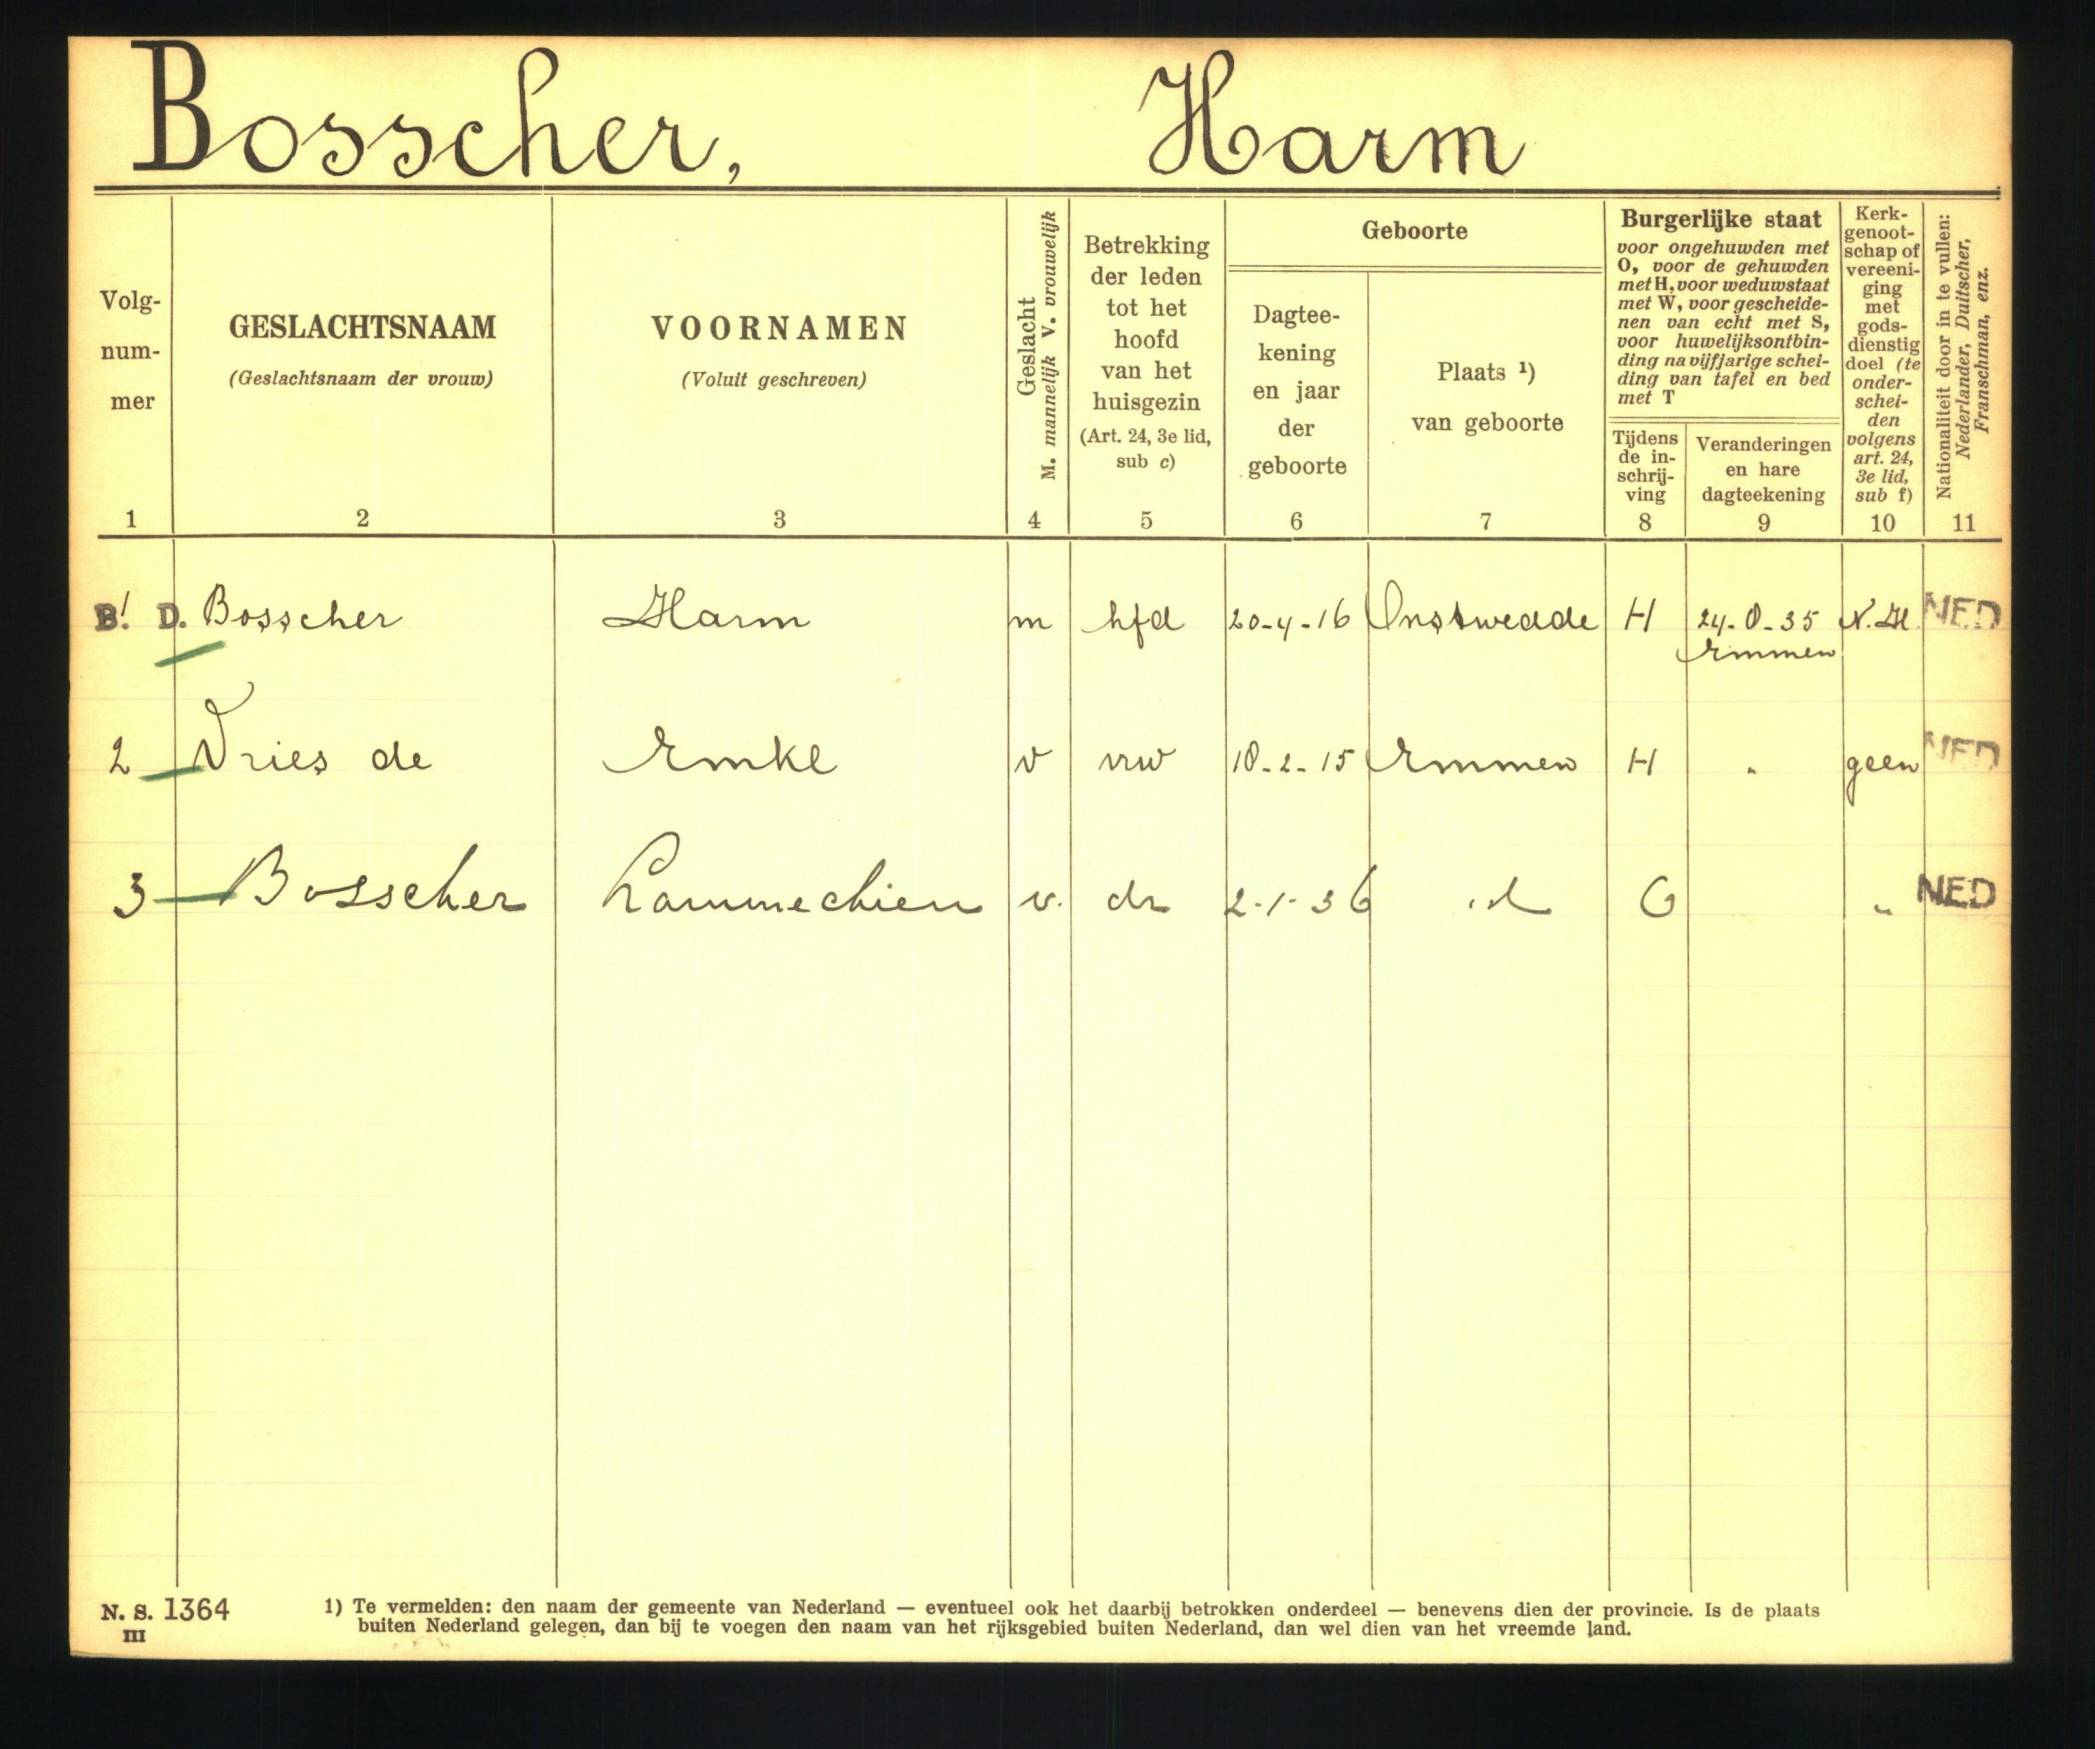 Bosscher, Harm
Volg-
num-
mer
1
GESLACHTSNAAM
(Geslachtsnaam der vrouw)
2
VOORNAMEN
(Voluit geschreven)
3
Geslacht
M. mannelijk V. vrouwelijk
4
Betrekking
der leden
tot het
hoofd
van het
huisgezin
(Art. 24, 3e lid,
sub c)
5
Geboorte
Dagtee-
kening
en jaar
der
geboorte
6
Plaats ¹)
van geboorte
7
Burgerlijke staat
voor ongehuwden met
O, voor de gehuwden
met H, voor weduwstaat
met W, voor gescheide-
nen van echt met S,
voor huwelijksontbin-
ding na vijfjarige schei-
ding van tafel en bed
met T
Tijdens
de in-
schrij-
ving
8
Veranderingen
en hare
dagteekening
9
Kerk-
genoot-
schap of
vereeni-
ging
met
gods-
dienstig
doel (te
onder-
schei-
den
volgens
art. 24,
3e lid,
sub f)
10
Nationaliteit door in te vullen:
Nederlander, Duitscher,
Franschman, enz.
11
B! D. Bosscher Harm m hfd 20-4-16 Onstwedde H 24-8-35 N.H. NED
Emmen
2 Vries de Emke v vrw 18-2-15 Emmen H " geen NED
3 Bosscher Lammechien v. dr 2-1-36 id O " NED
N. S. 1364
III
1) Te vermelden: den naam der gemeente van Nederland — eventueel ook het daarbij betrokken onderdeel — benevens dien der provincie. Is de plaats
buiten Nederland gelegen, dan bij te voegen den naam van het rijksgebied buiten Nederland, dan wel dien van het vreemde land.